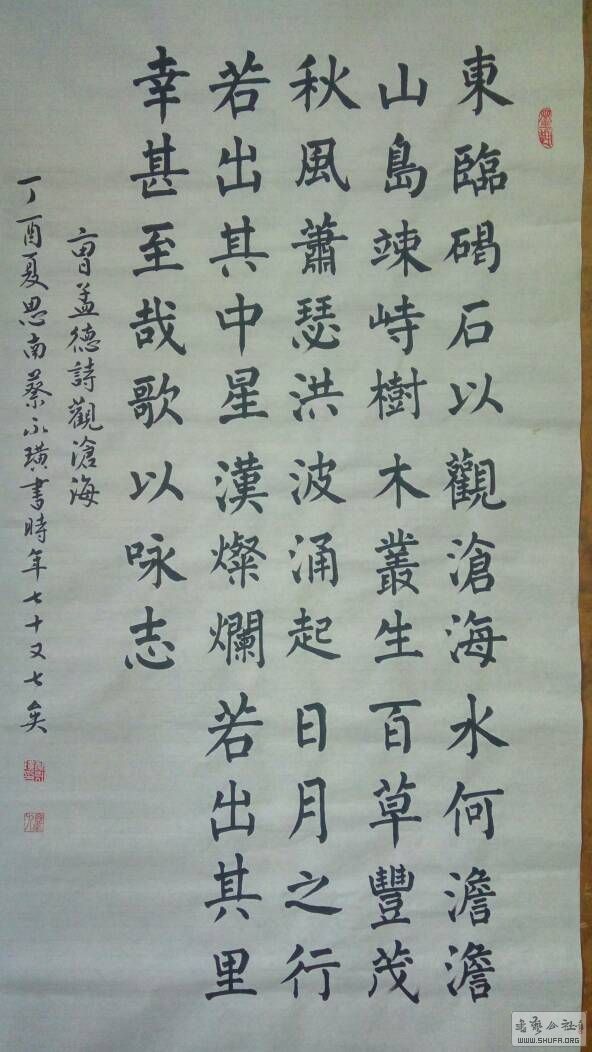 東臨碣石以觀滄海水何澹澹
山島竦峙樹木叢生百草豐茂
秋風蕭瑟洪波涌起日月之行
若出其中星漢燦爛若出其里
幸甚至哉歌以咏志
曹孟德詩觀滄海
丁酉夏思南蔡璜書時年七十又七矣
书艺公社
WWW.SHUFA.ORG